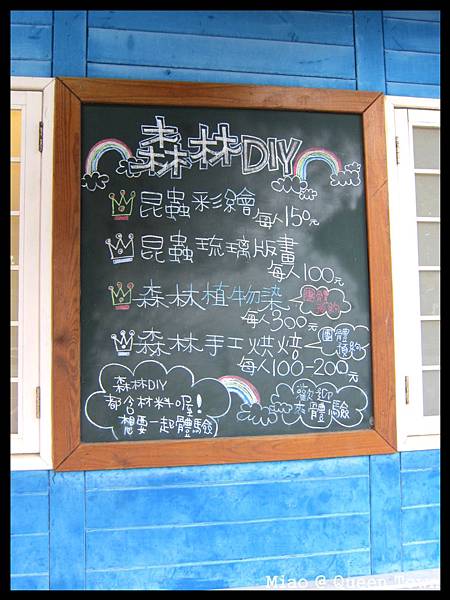 森林DIY
昆蟲彩繪
每人150元
昆蟲琉璃版畫
每人100元
森林植物染
團體預約
每人300元
森林手工烘焙
團體預約
每人100-200元
森林DIY
都含材料喔!
想要一起體驗
歡迎
來體驗
Miao @ Queen Town